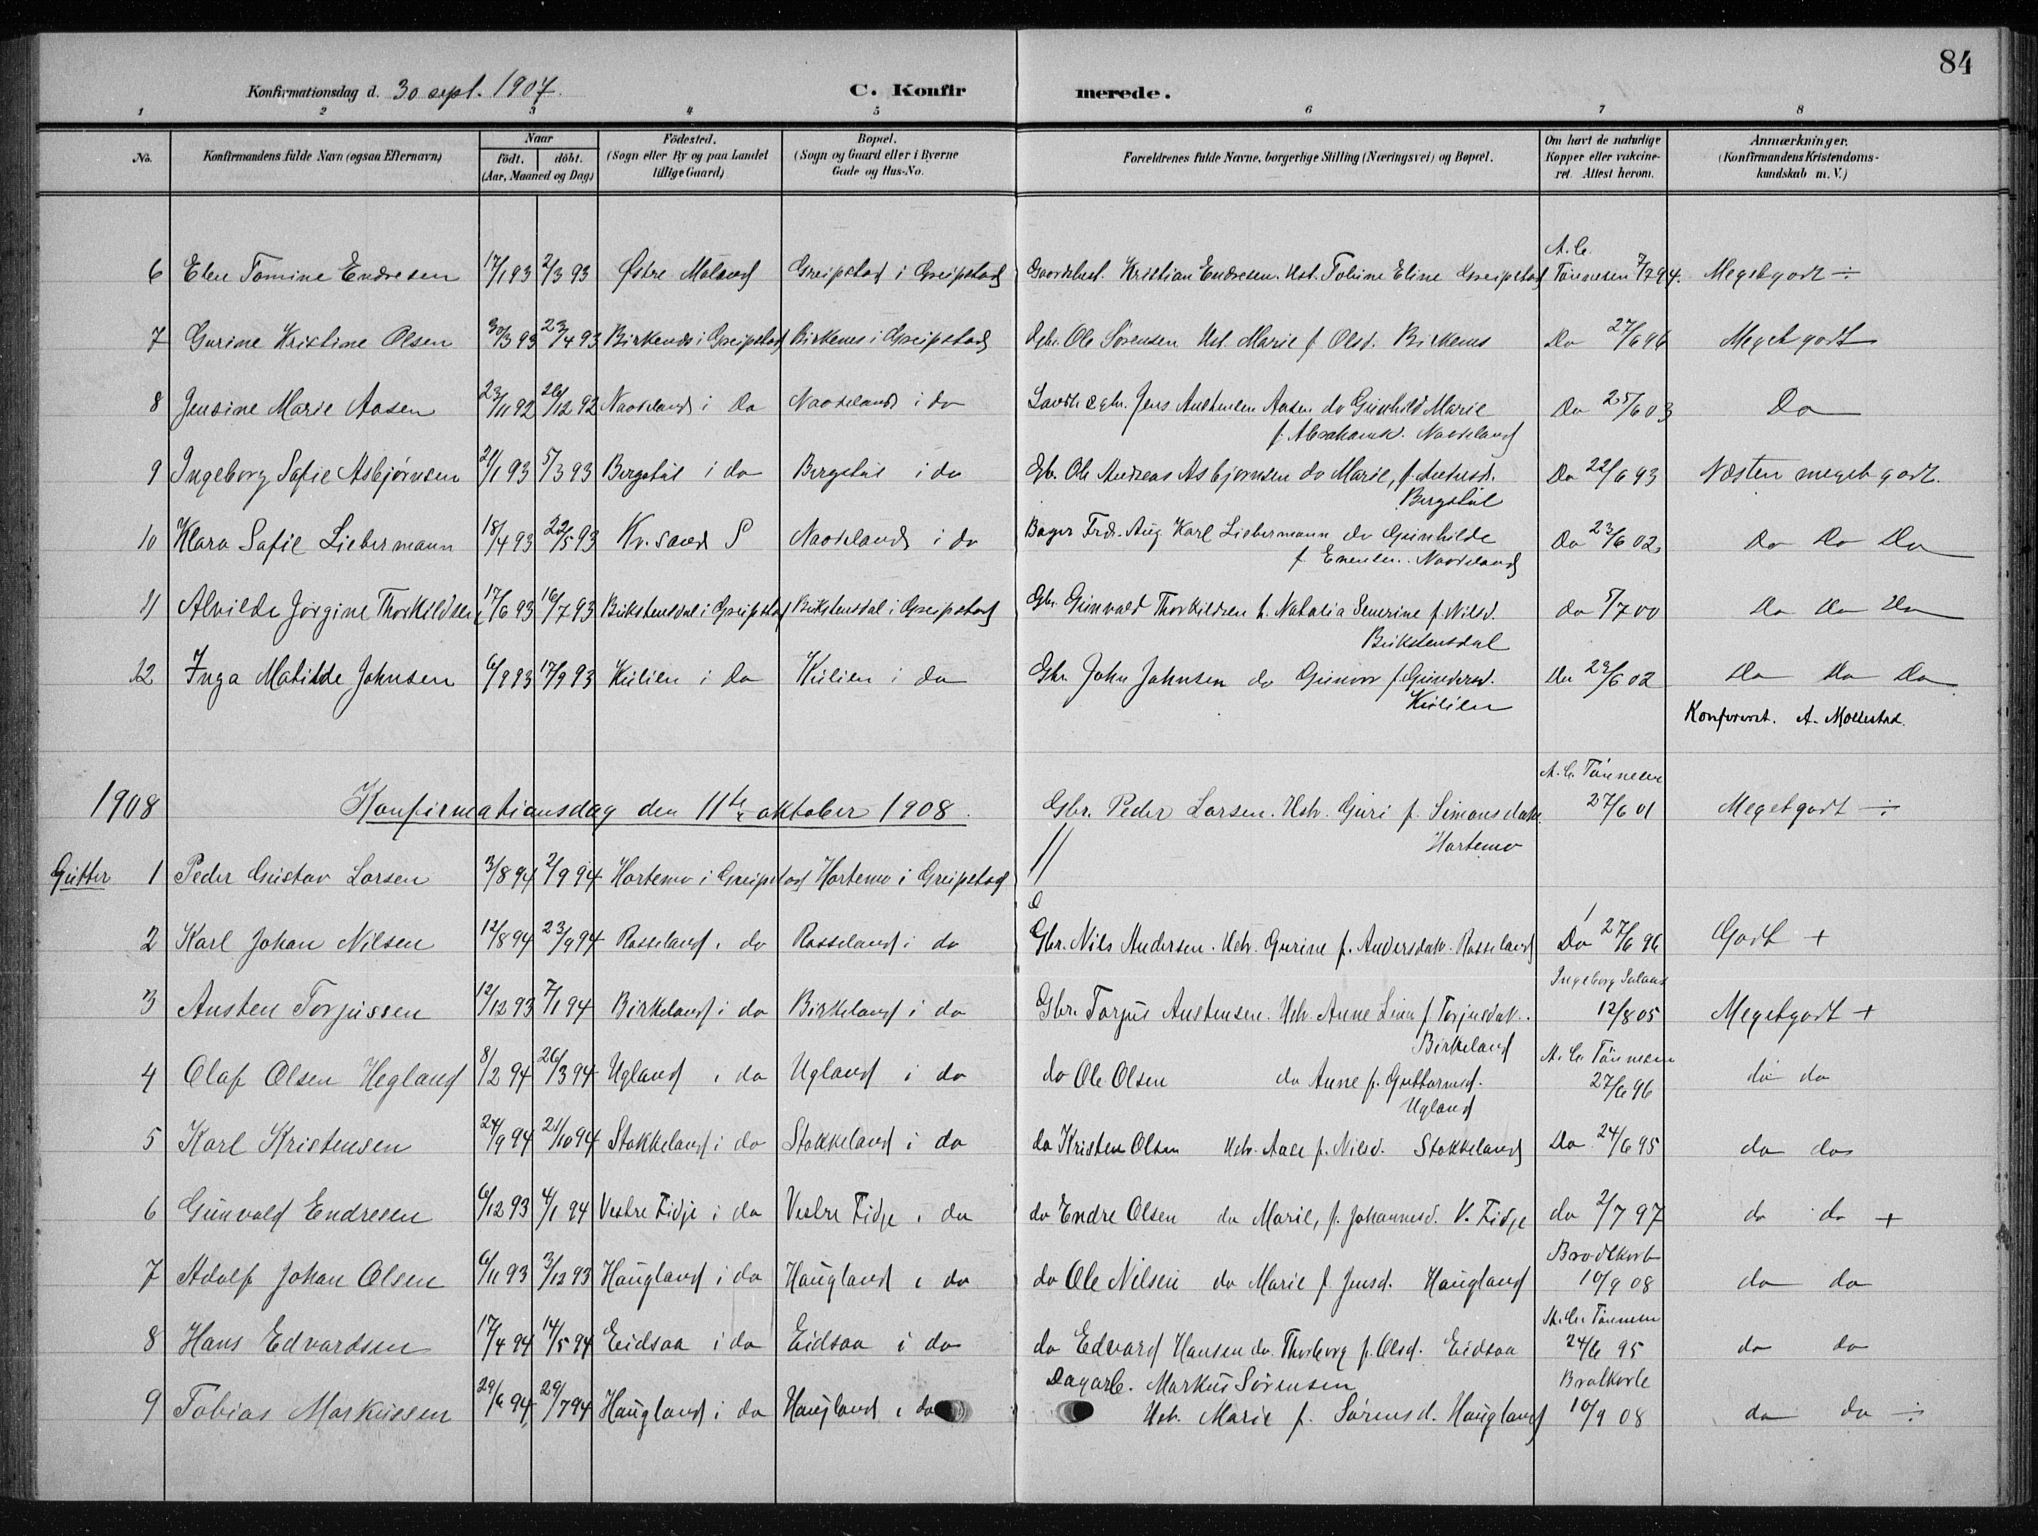 84
Konfirmationsdag d. 30 sept. 1907. C. Konfirmerede.
1 2 3 4 5 6 7 8
No. Konfirmandens fulde Navn (ogsaa Efternavn) Naar født. døbt. (Aar, Maaned og Dag) Fødested. (Sogn eller By og paa Landet tillige Gaard) Bopæl. (Sogn og Gaard eller i Byerne Gade og Hus-No. Forældrenes fulde Navne, borgerlige Stilling (Næringsvei) og Bopæl. Om havt de naturlige Kopper eller vakcineret. Attest herom. Anmærkninger. (Konfirmandens Kristendomskundskab m. V.)
6 Elen Tomine Endresen 17/1 93 2/3 93 Østre Moland Greipstad i Greipstad Kristian Endresen. Hst. Tobine Eline Greipstad A. C. Tønnesen 7/7 94. Megetgodt ÷
7 Gurine Kristine Olsen 30/3 93 23/4 93 Birkenes i Greipstad Birkenes i Greipstad Gbr. Ole Sørensen Hst. Marie f. Olsd. Birkenes Do 27/6 96 Megetgodt
8 Jensine Marie Aasen 23/11 92 26/12 92 Naodeland i do Naodeland i do Gbr. Jens Austensen Aasen do Gunhild Marie Do 25/6 03 Do
f. Abrahamd. Naodeland
9 Ingeborg Sofie Asbjørnsen 21/1 93 5/3 93 Bergstøl i do Bergstøl i do Gb. Ole Andreas Asbjørnsen do Marie, f. Do 22/6 93 Næsten meget godt.
Bergstøl
10 Klara Sofie Liebermann 18/4 93 22/5 93 Kr. sand S Naodeland i do Bager Frdr. Aug. Karl Liebermann do Gunhilde Do 23/6 02 Do Do Do
f. Evensen. Naodeland
11 Alvilde Jørgine Thorkildsen 17/6 93 16/7 93 Bukstensdal i Greipstad Bukstensdal i Greipstad Gbr. Gunvald Thorkildsen h. Natalia Severine f. Nilsd. do 5/7 00 Do Do Do
Bukstensdal
12 Inga Matilde Johnsen 6/9 93 17/9 93 Kulien i do Kulien i do Gbr. John Johnsen do Gunvor f. Gundersd. Do 23/6 02 Do Do Do
Kulien
Konfereret. A. Mollestad.
1908 Konfirmationsdag den 11te oktober 1908.
Gbr. Peder Larsen. Hst. Guri f. Simonsdatr. A. C. Tønnesen 27/6 01 Megetgodt ÷
Hortemo
Gutter 1 Peder Gustav Larsen 3/8 94 2/9 94 Hortemo i Greipstad Hortemo i Greipstad //
2 Karl Johan Nilsen 12/8 94 23/9 94 Rosseland i do Rosseland i do Gbr. Nils Andersen. Hst. Gurine f. Andersdatr. Rosseland Do 27/6 96 Godt +
3 Austen Torjussen 12/12 93 7/1 94 Birkeland i do Birkeland i do Gbr. Torjus Austensen. Hst. Anne Lina f. Torjusdatr. Ingeborg 12/8 05 Megetgodt +
Birkeland
4 Olaf Olsen Hegland 8/2 94 26/3 94 Ugland i do Ugland i do do Ole Olsen do Anne f. Guttormsd. A. C. Tønnesen 27/6 96 do do
Ugland
5 Karl Kristensen 24/9 94 21/10 94 Stokkeland i do Stokkeland i do do Kristen Olsen Hst. Aase f. Nilsd. Stokkeland Do 24/6 95 do do
6 Gunvald Endresen 6/12 93 4/1 94 Vestre Fidje i do Vestre Fidje i do do Endre Olsen do Marie, f. Johannesd. V. Fidje do 2/7 97 do do +
7 Adolf Johan Olsen 6/11 93 3/12 93 Haugland i do Haugland i do do Ole Nilsen do Marie f. Jensd. Haugland Brodtkorb 10/9 08 do do
8 Hans Edvardsen 17/4 94 14/5 94 Eidsaa i do Eidsaa i do do Edvard Hansen do. Thorborg f. Olsd. Eidsaa A. C. Tønnesen 24/6 95 do do
9 Tobias Markussen 29/6 94 29/7 94 Haugland i do Haugland i do Dagarb. Markus Sørensen Brotkorb 10/9 08 do do ÷
Hst. Marie f. Sørensd. Haugland